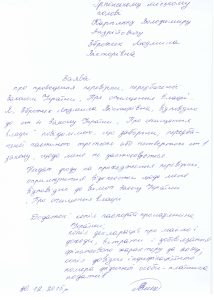 Ірпінському міському
голові
Карплюку Володимиру
Андрійовичу
Людмила
Вікторівна
Заява
про проведення перевірки, передбаченої
Законом України „Про очищення влади“
Я, Людмила Вікторівна, відповідно
до ст. 4 Закону України „Про очищення
влади“ повідомляю, що заборони, передба-
чені частиною третьою або четвертою ст. 1
Закону, щодо мене не застосовуються.
Надаю згоду на проходження перевірки,
оприлюднення відомостей щодо мене
відповідно до вимог Закону України
„Про очищення влади“.
Додаток: копія паспорта громадянина
України;
копія декларації про майно,
доходи, витрати і зобов'язання
фінансового характеру за рік;
копія довідки ідентифікаційного
номера фізичної особи-платника
податків
12.2015р.